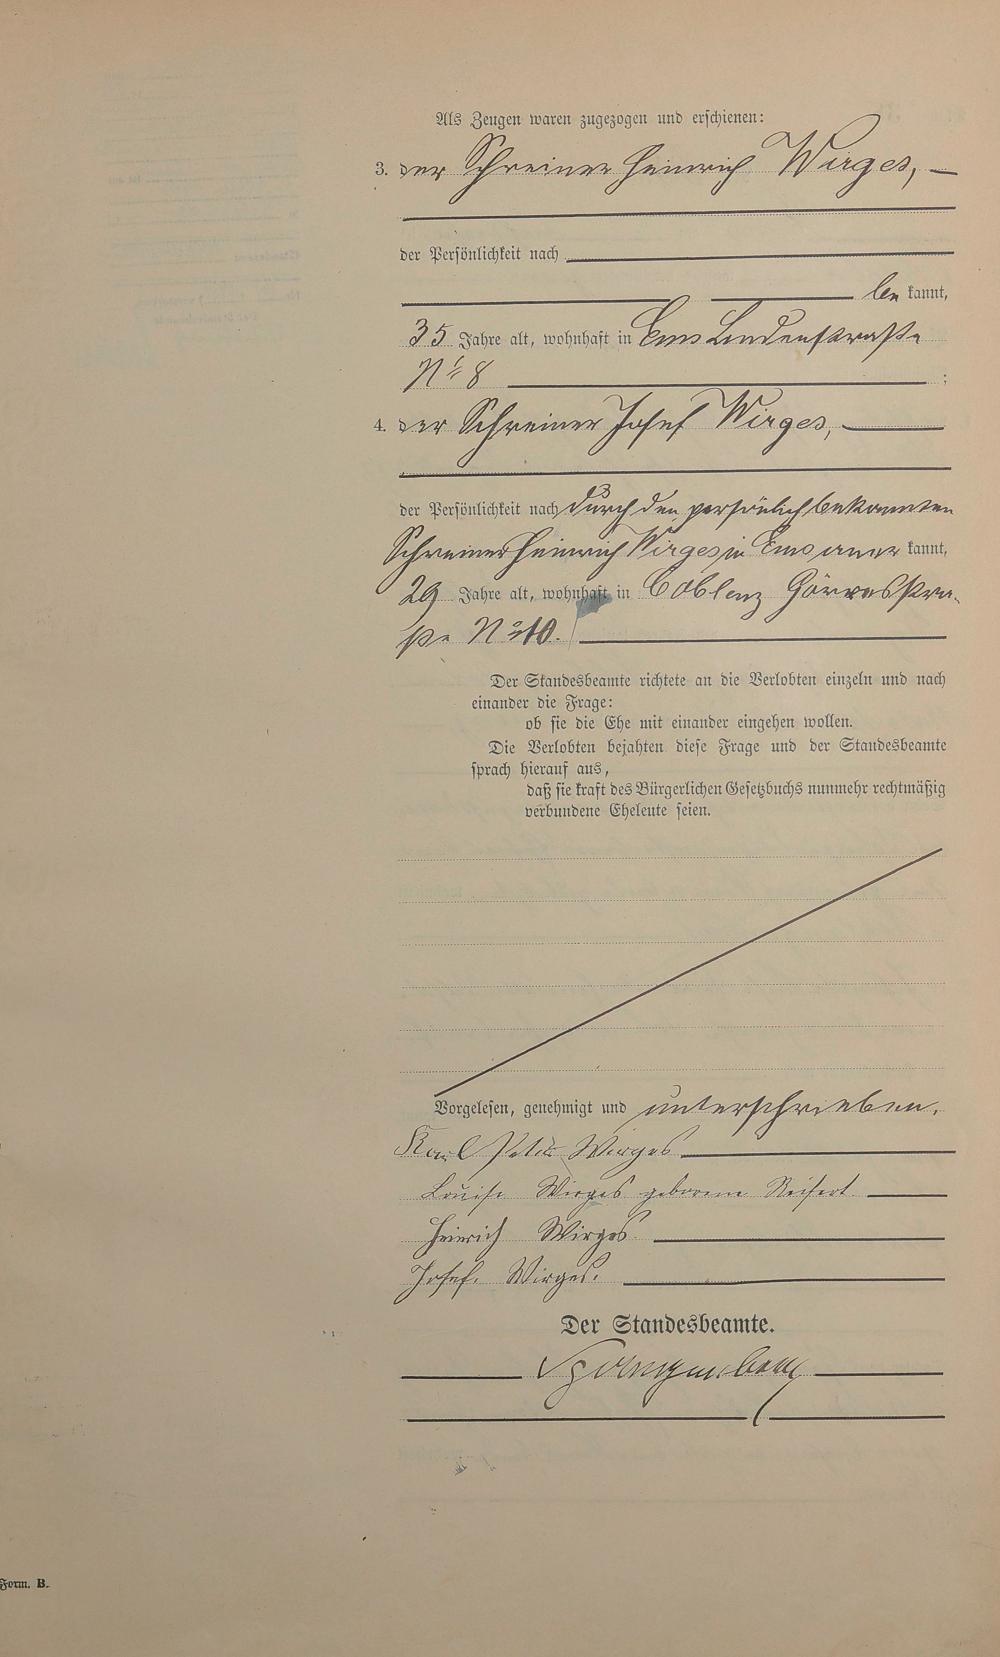 Als Zeugen waren zugezogen und erschienen:
3. der Schreiner Heinrich Wirges,
der Persönlichkeit nach
be kannt,
35 Jahre alt, wohnhaft in Ems Lindenstraße
No 8 ;
4. der Schreiner Josef Wirges,
der Persönlichkeit nach durch den persönlich bekannten
Schreiner Heinrich Wirges in Ems aner kannt,
29 Jahre alt, wohnhaft in Coblenz Görresstra-
ße No 10.
Der Standesbeamte richtete an die Verlobten einzeln und nach
einander die Frage:
ob sie die Ehe mit einander eingehen wollen.
Die Verlobten bejahten diese Frage und der Standesbeamte
sprach hierauf aus,
daß sie kraft des Bürgerlichen Gesetzbuchs nunmehr rechtmäßig
verbundene Eheleute seien.
Vorgelesen, genehmigt und unterschrieben.
Karl Peter Wirges
Louise Wirges geborene Reifert
Heinrich Wirges
Josef Wirges.
Der Standesbeamte.
Form. B.